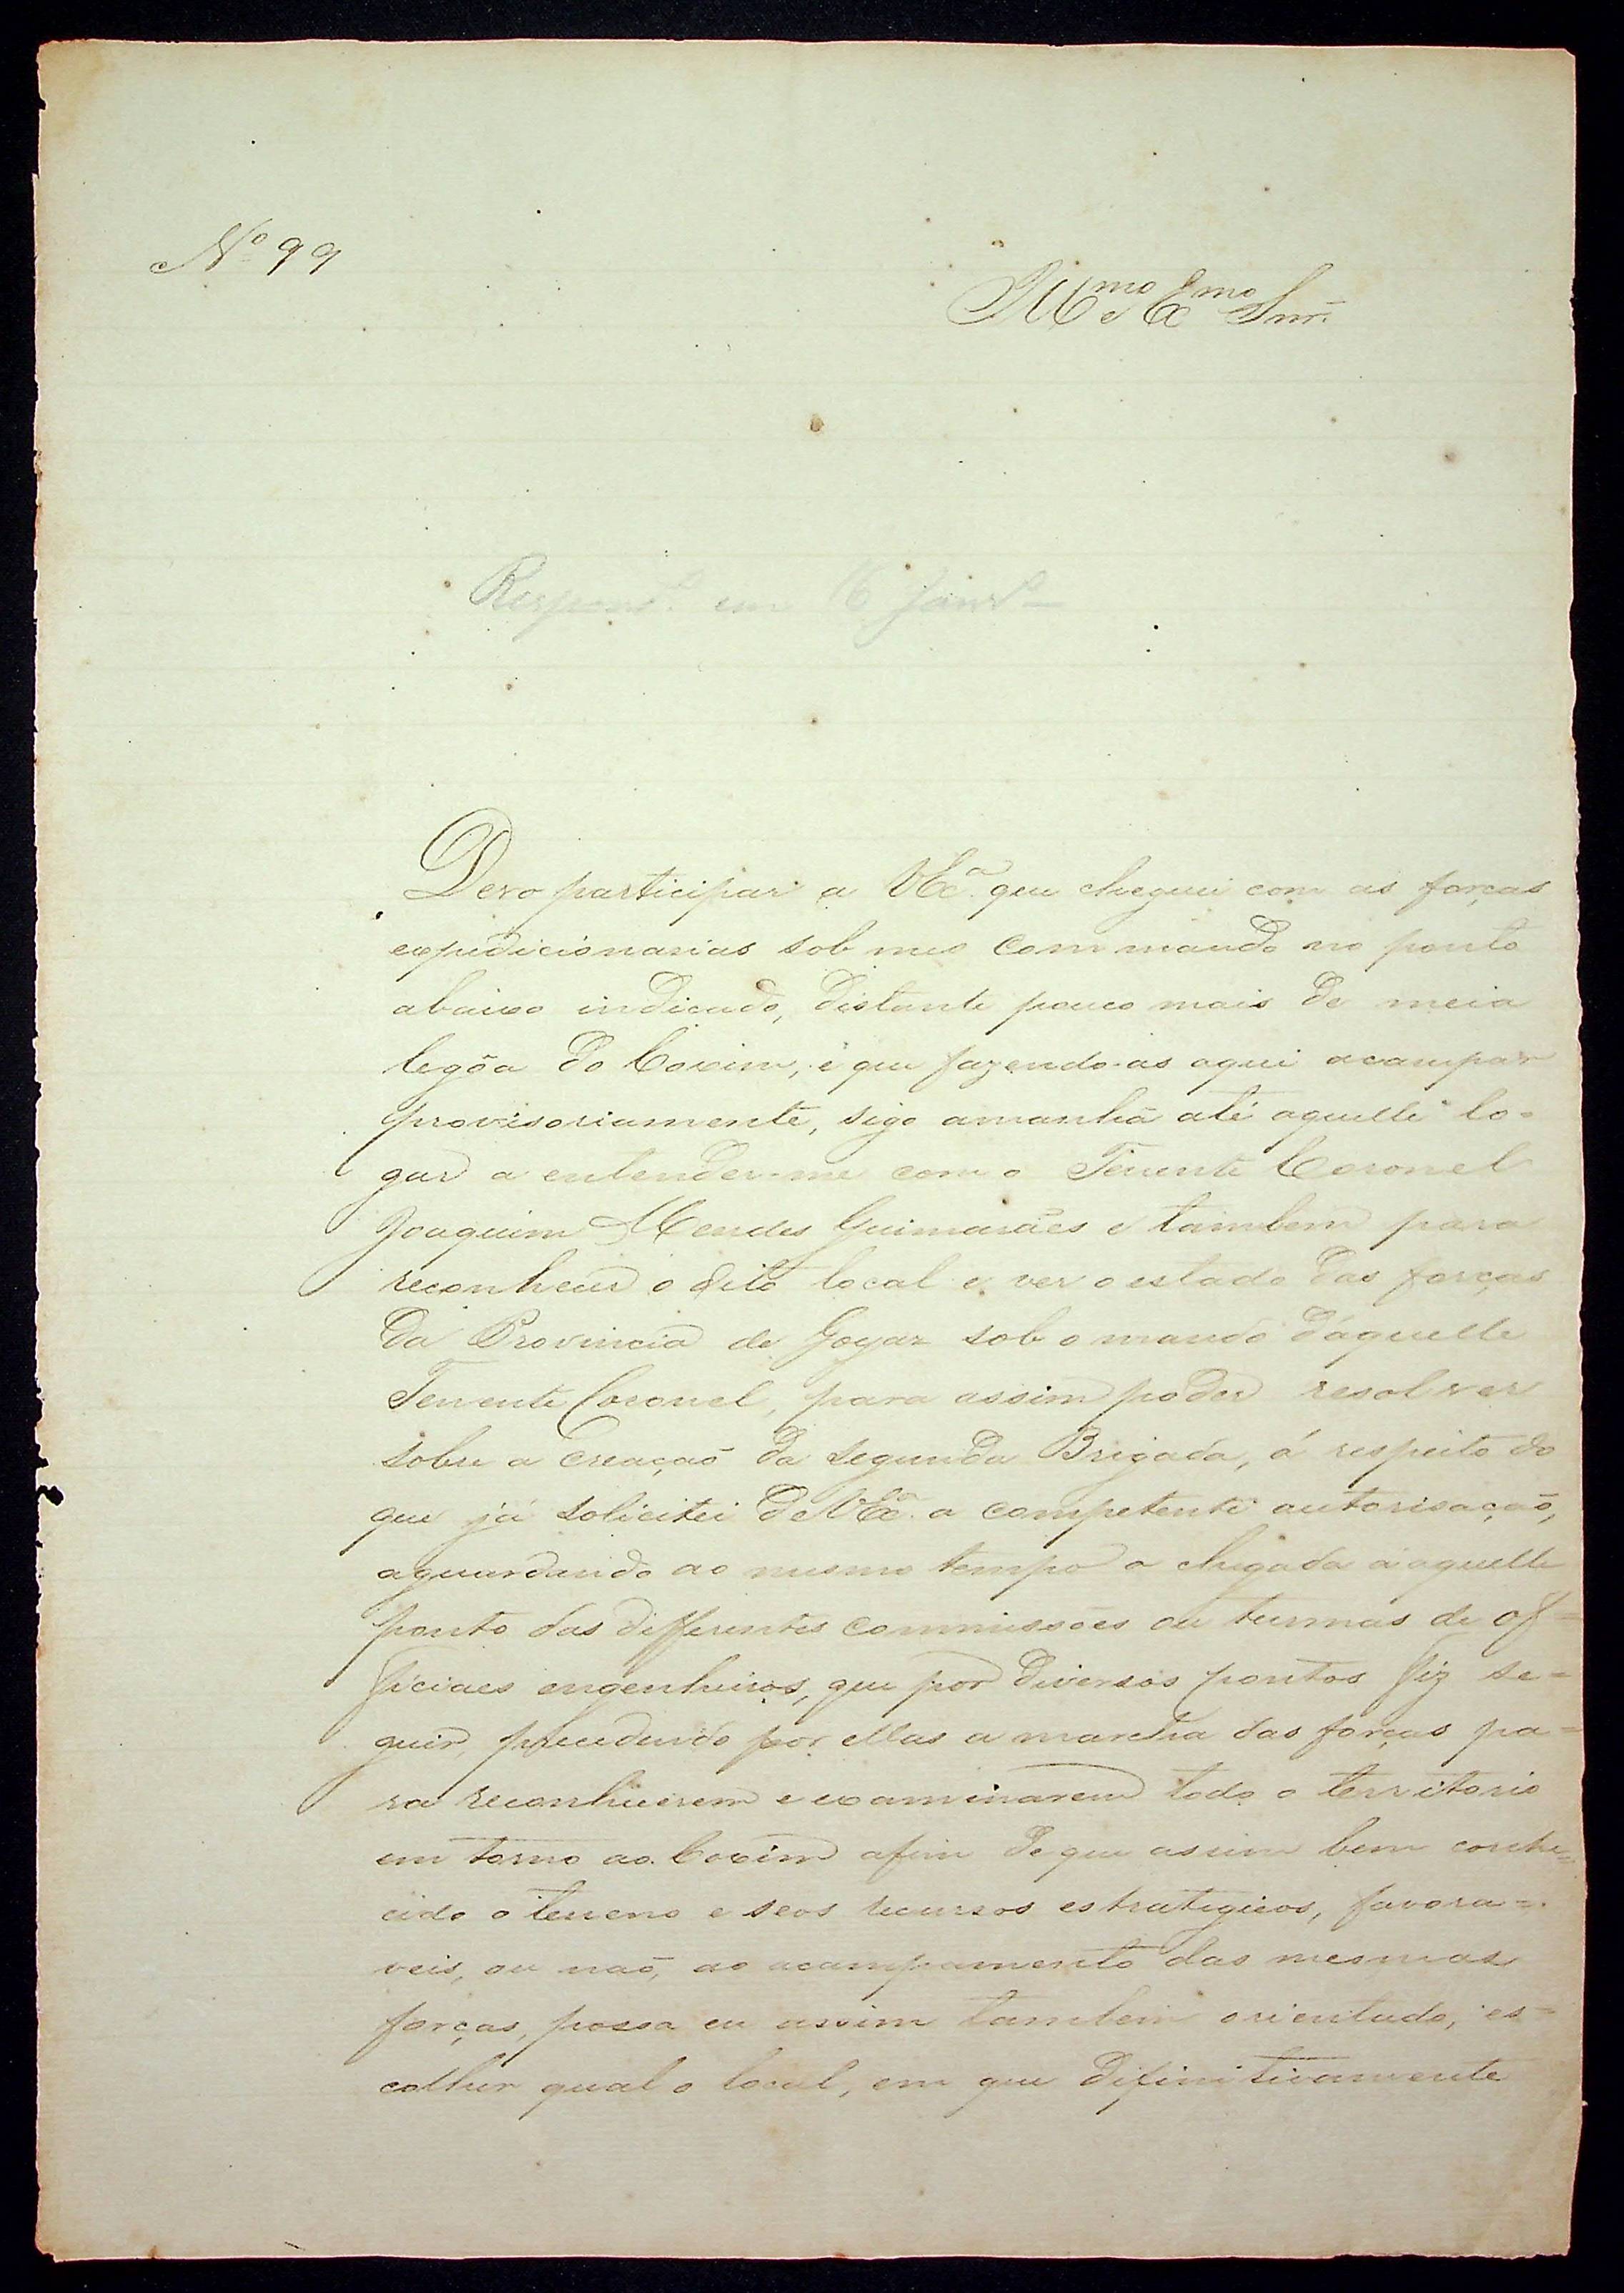 Nº 99
Illmo e Exmo Snr.
Respondo em 6 Janro
Devo participar a VExcª que cheguei com as forças
expedicionarias sob meo Commando no ponto
abaixo indicado, distante pouco mais de meia
legôa do Coxim, e que fazendo-as aqui acampar
provisoriamente, sigo amanhã até aquelle lo-
gar a entender-me com o Tenente Coronel
Joaquim Mendes Guimarães e tambem para
reconhecer o dito local e ver o estado das forças
da Provincia de Goyaz sob o mando d'aquelle
Tenente Coronel, para assim poder resolver
sobre a Creação da segunda Brigada, á respeito do
que já solicitei de VExcª a competente autorisação,
aguardando ao mesmo tempo a chegada á aquelle
ponto das differentes Commissões ou turmas de of=
ficiaes engenheiros, que por diversos pontos fiz se=
guir, precedendo por ellas a marcha das forças pa=
ra reconhecerem e examinarem todo o territorio
em torno ao Coxim afim de que assim bem conhe=
cido o terreno e seos recursos estrategicos, favora=
veis, ou não, ao acampamento das mesmas
forças, possa eu assim tambem orientado, es=
colher qual o local, em que difinitivamente